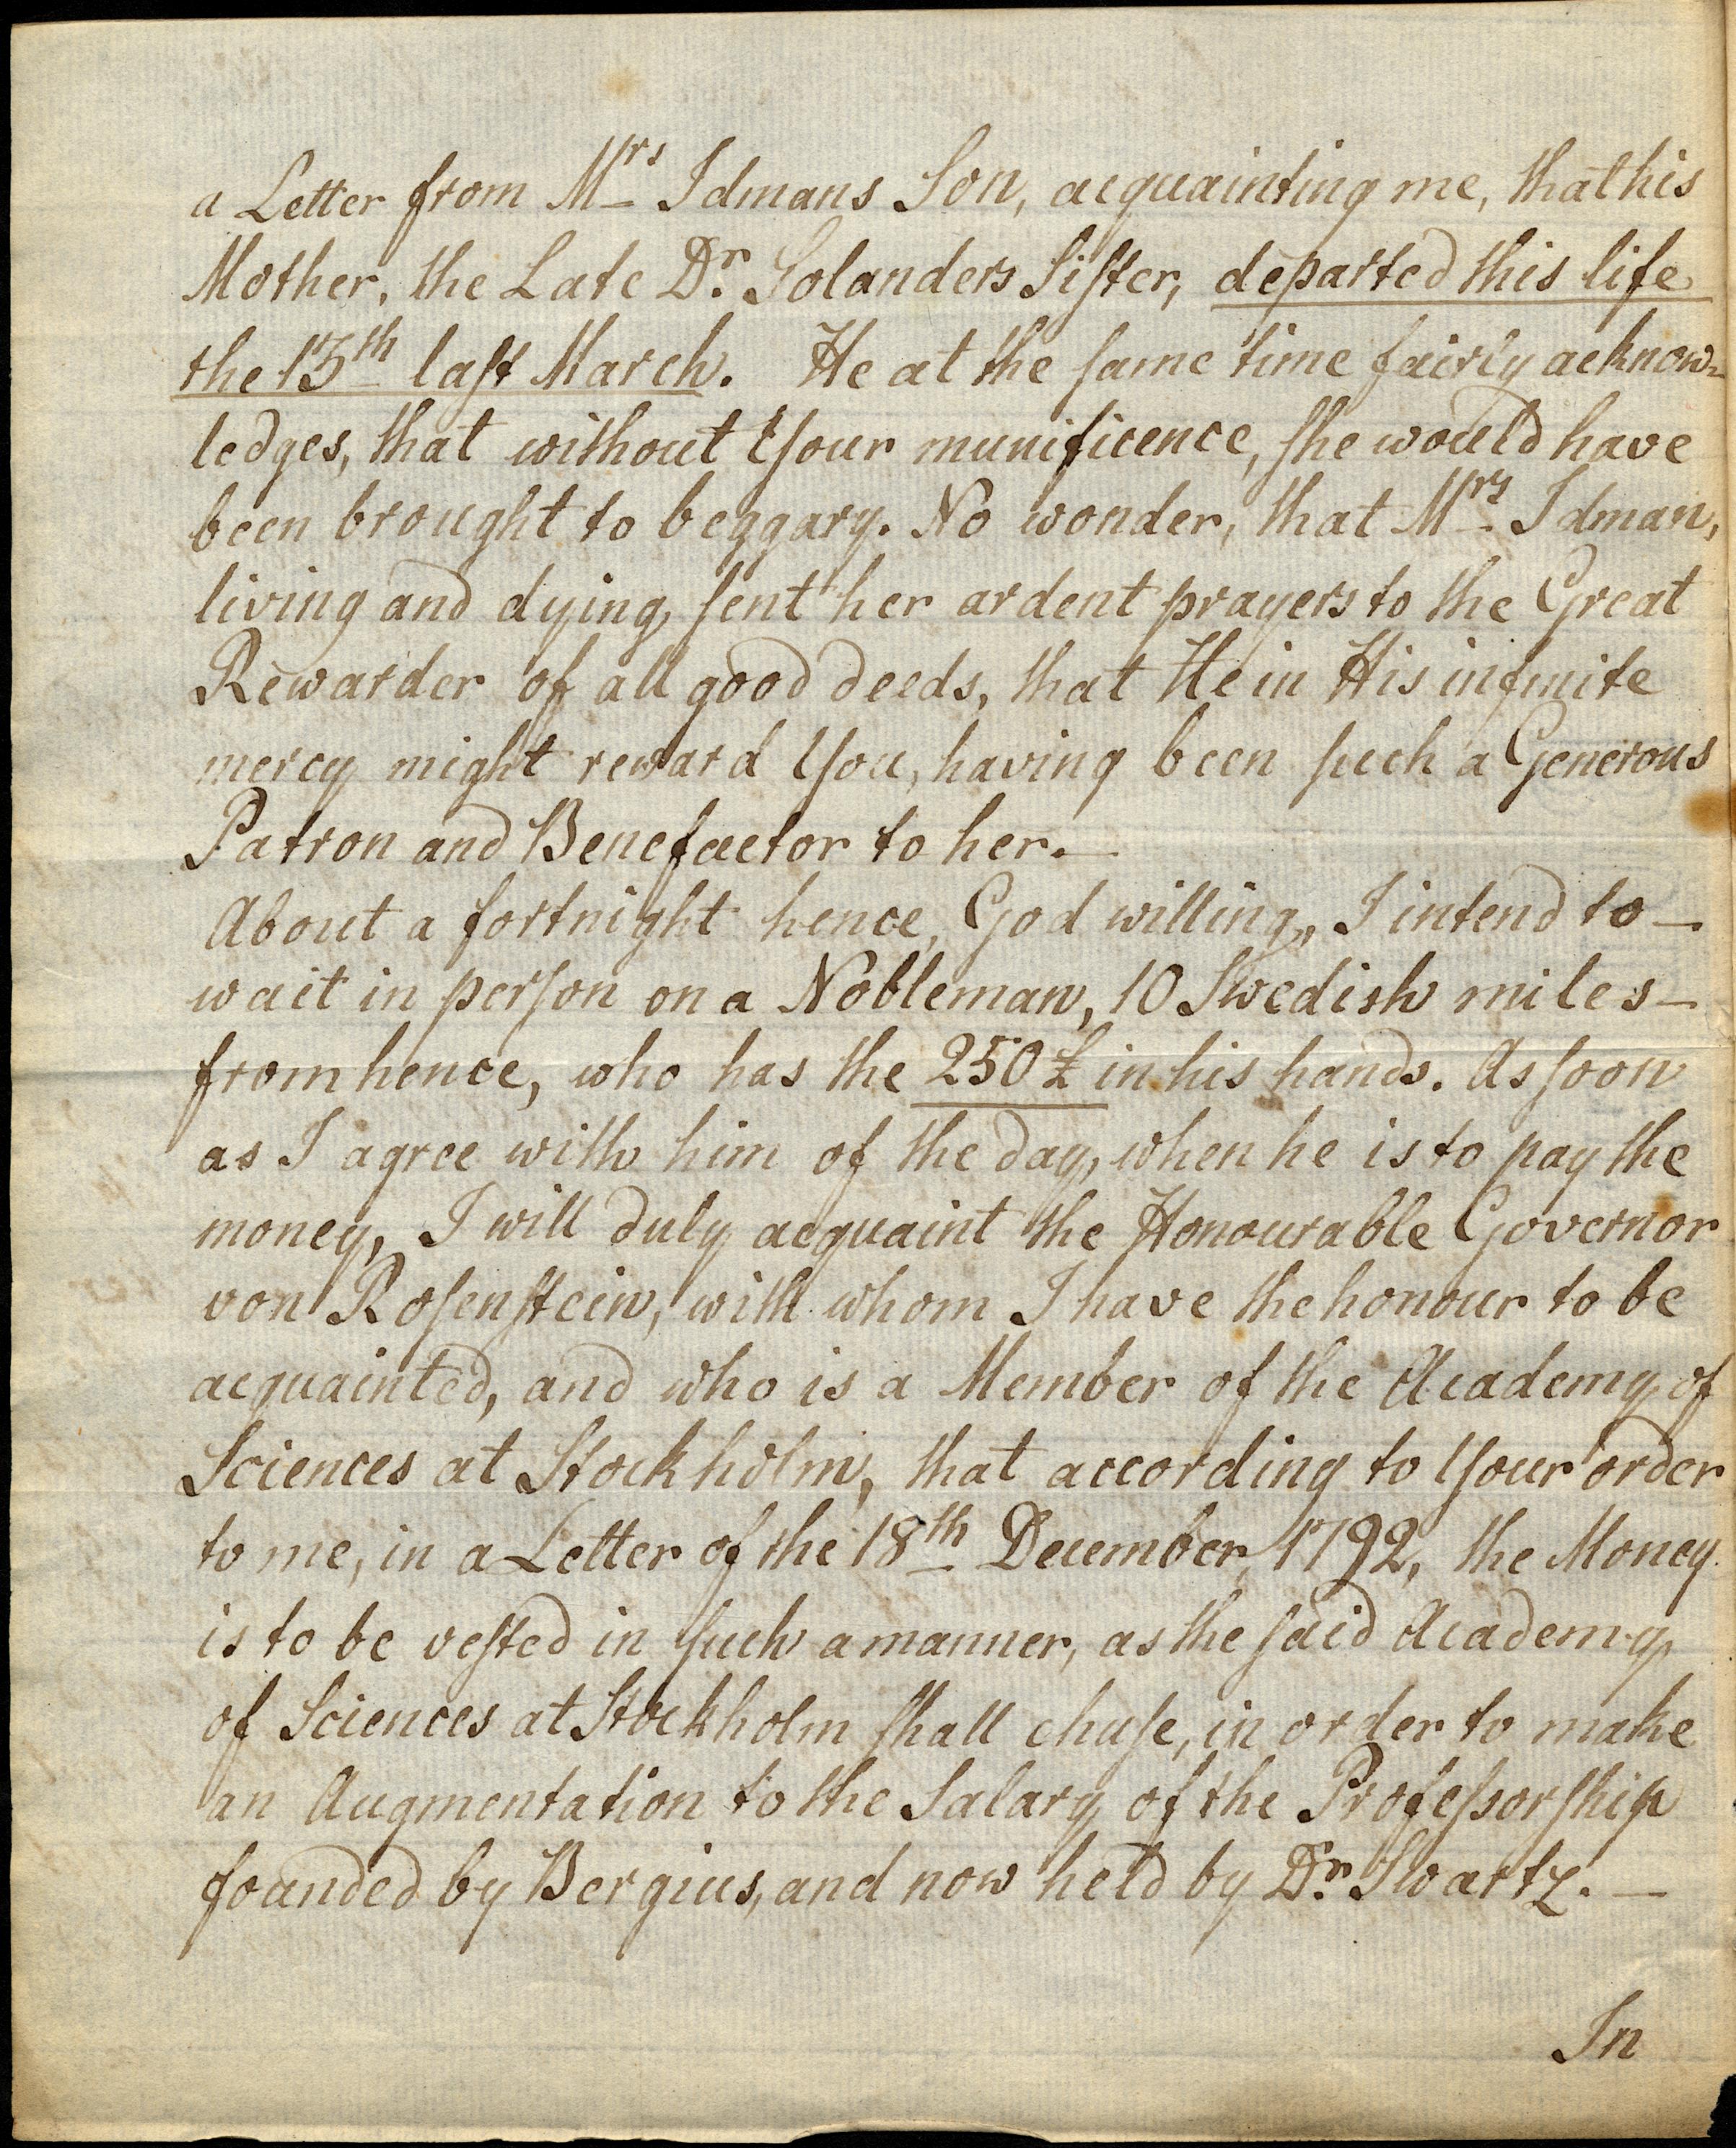 a Letter from Mrs Idmans Son, acquainting me, that his
Mother, the Late Dr. Solanders Sister, departed this life
the 13th last March. He at the same time fairly acknow-
ledges, that without Your munificence, she would have
been brought to beggary. No wonder, that Mrs Idman,
living and dying, sent her ardent prayers to the Great
Rewarder of all good deeds, that He in His infinite
mercy might reward You, having been such a Generous
Patron and Benefactor to her.—
About a fortnight hence, God willing, I intend to—
wait in person on a Nobleman, 10 Swedish miles—
from hence, who has the 250 £ in his hands. As soon
as I agree with him of the day, when he is to pay the
money, I will duly acquaint the Honourable Governor
von Rosenstein, with whom I have the honour to be
acquainted, and who is a Member of the Academy of
Sciences at Stockholm, that according to Your order
to me, in a Letter of the 18th December, 1792, the Money
is to be vested in such a manner, as the said Academy
of Sciences at Stockholm shall chuse, in order to make
an Augmentation to the Salary of the Professorship
founded by Bergius, and now held by Dr. Swartz.—
In